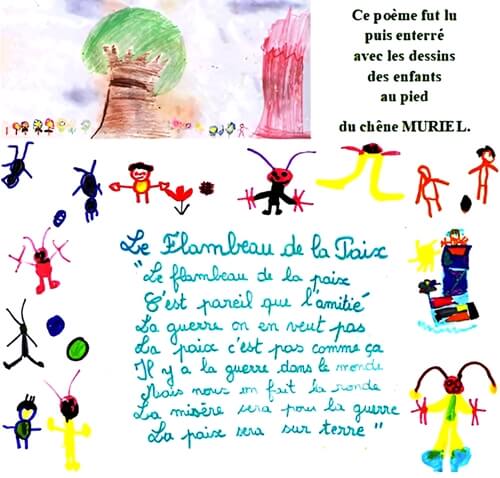 Ce poème fut lu
puis enterré
avec les dessins
des enfants
au pied
du chêne MURIEL.
Le Flambeau de la Paix
"Le flambeau de la paix
C'est pareil que l'amitié
La guerre on en veut pas
La paix c'est pas comme ça
Il y a la guerre dans le monde
Mais nous on fait la ronde
La misère sera pour la guerre
La paix sera sur terre"